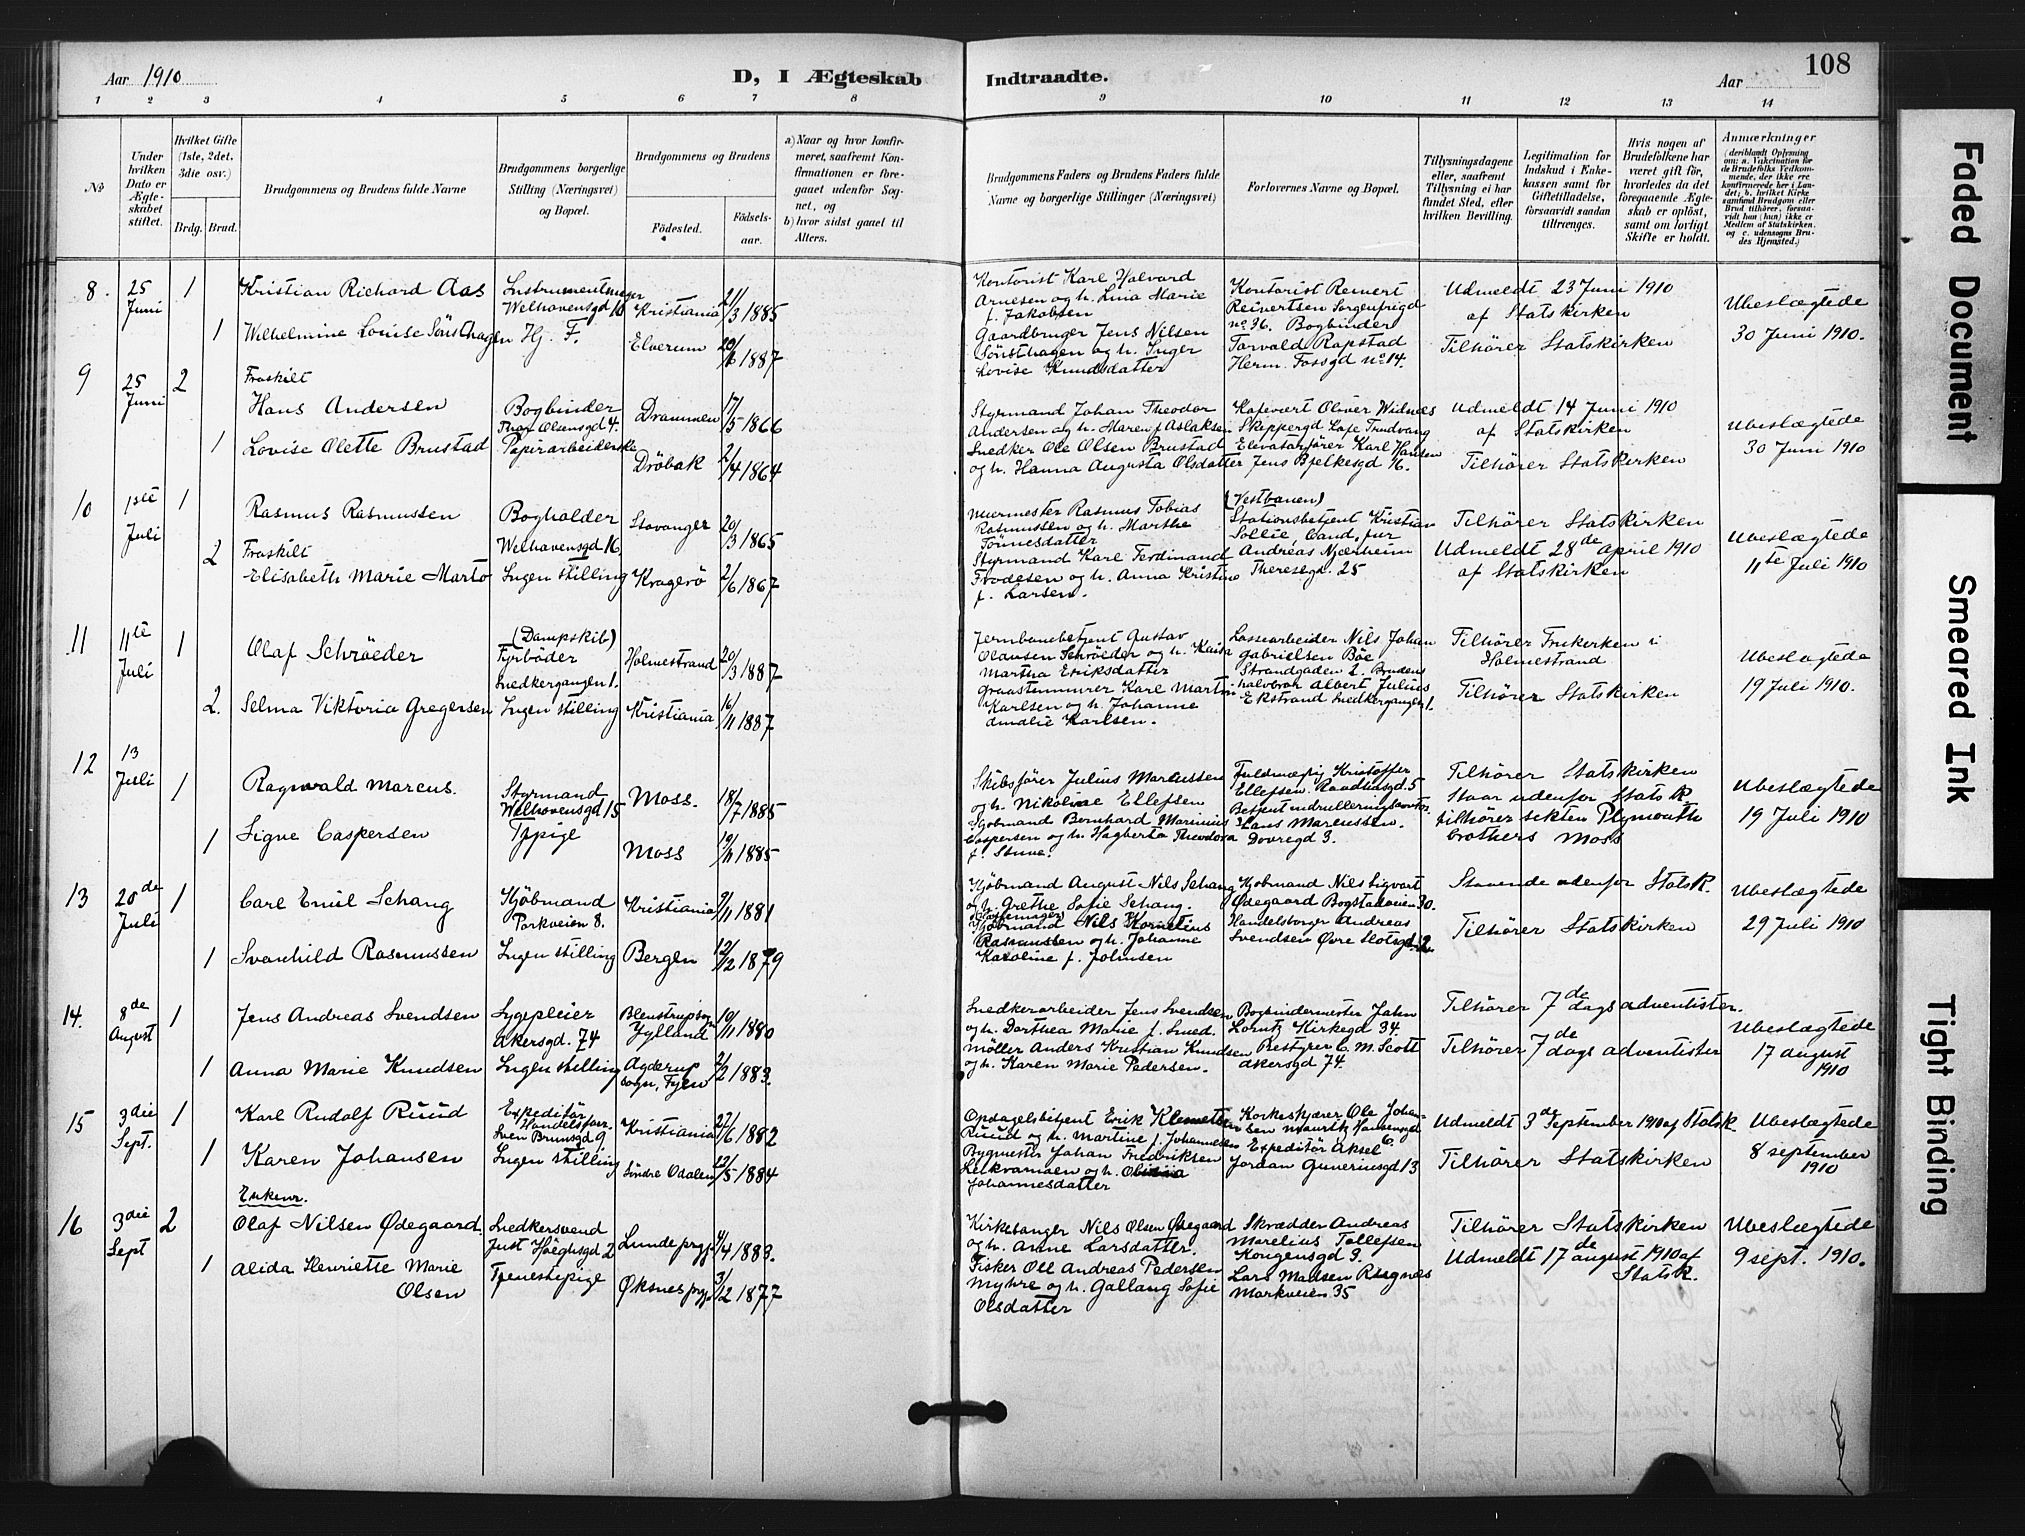 Aar 1910
D, I Ægteskab
Indtraadte.
Aar
108
1 2 3 4 5 6 7 8 9 10 11 12 13 14
No
Under hvilken Dato er Ægteskabet stiftet.
Hvilket Gifte (1ste, 2det, 3die osv.)
Brdg. Brud.
Brudgommens og Brudens fulde Navne
Brudgommens borgerlige Stilling (Næringsvei) og Bopæl.
Brudgommens og Brudens
Födested.
Födselsaar.
a) Naar og hvor konfirmeret, saafremt Konfirmationen er foregaaet udenfor Sognet, og
b) hvor sidst gaaet til Alters.
Brudgommens Faders og Brudens Faders fulde Navne og borgerlige Stillinger (Næringsvei)
Forlovernes Navne og Bopæl.
Tillysningsdagene eller, saafremt Tillysning ei har fundet Sted, efter hvilken Bevilling.
Legitimation for Indskud i Enkekassen samt for Giftetilladelse, forsaavidt saadan tiltrænges.
Hvis nogen af Brudefolkene har været gift för, hvorledes da det foregaaende Ægteskab er oplöst, samt om lovligt Skifte er holdt.
Anmærkninger
(deriblandt Oplysning om: a. Vakcination for de Brudefolks Vedkommende, der ikke ere konfirmerede her i Landet; b. hvilket Kirkesamfund Brudgom eller Brud tilhörer, forsaavidt han (hun) ikke er Medlem af Statskirken. og c. udensogns Brudes Hjemsted.)
8. 25 Juni 1
Kristian Richard Aas
Instrumentmager
Welhavensgd 16
Kristiania 21/3 1885
Kontorist Karl Halvard
Arnesen og h. Lina Marie
f. Jakobsen
Kontorist Reinert
Reivertsen Sorgenfrigd
no 36. Bogbinder
Udmeldt 23 Juni 1910
af Statskirken
Ubeslægtede
30 Juni 1910.
1 Welhelmine Louise Sönsthagen Hj. F.
Elverum 1887
Gaardbruger Jens Nilsen
Sönsthagen og h. Inger
Lovise Knudsdatter
Torvald Rapstad
Herm. Fossgd no 14.
Tilhører Statskirken
9 25 Juni 2
Fraskilt
Hans Andersen
Bogbinder
Thor Olsensgd 4.
Drammen 17/5 1866
Styrmand Johan Theodor
Andersen og h. Maren f. Aslaksen
Kafevert Oliver Widnes
Skippergd Cafe Trudvang
Udmeldt 14 Juni 1910
af Statskirken
Ubeslægtede
30 Juni 1910
1 Lovise Olette Brustad
Papirarbeiderske
Dröbak 2/4 1864
Snedker Ole Olsen Brustad
og h. Hanna Augusta Olsdatter
Elevatorfører Karl Hansen
Jens Bjelkesgd 16.
Tilhører Statskirken
10 1ste Juli 1
Rasmus Rasmussen
Bogholder
Welhavensgd 16
Stavanger 20/3 1865
Murmester Rasmus Tobias
Rasmussen og h. Marthe
Tönnesdatter
(Vestbanen)
Stationsbetjent Kristian
Sollie, Cand. jur
Tilhører Statskirken
Ubeslægtede
11te Juli 1910
2 Fraskilt
Elisabeth Marie Martö
Ingen stilling
Kragerö 2/6 1867
Styrmand Karl Ferdinand
Frodesen og h. Anna Kristine
f. Larsen.
Andreas Njerheim
Theresegd. 25
Udmeldt 28de April 1910
af Statskirken
11 11te Juli 1
Olaf Schrøeder
(Dampskib)
Fyrböder
Snedkergangen 1.
Holmestrand 20/3 1887
Jernbanebetjent Gustav
Olausen Schrøeder og h. Kaisa
Martha Eriksdatter
Lossearbeider Nils Johan
Gabrielsen Böe
Strandgaden 2. Brudens
Tilhører Frikirken i
Holmestrand
Ubeslægtede
19 Juli 1910.
2. Selma Viktoria Gregersen
Ingen stilling
Kristiania 16/11 1887
Graastenmurer Karl Martin
Karlsen og h. Johanne
Amalie Karlsen.
halvbror Albert Julius
Ekstrand Snedkergangen 1.
Tilhører Statskirken
12 13 Juli 1
Ragnvald Marcus.
Styrmand
Welhavensgd 15
Moss. 18/7 1885
Skibsfører Julius Marcussen
og h. Nikoline Ellefsen
Fuldmægtig Kristoffer
Ellefsen. 5
Tilhører Statskirken
Ubeslægtede
19 Juli 1910
1 Signe Caspersen
Tjpige
Moss 19/11 1885
Styrmand Bernhard Marinius
Caspersen og h. Hagberta Theodora
Marcussen.
Dovregd 3.
Staar udenfor Stats K
tilhører sekten Plymouth
brothers Moss
13 20de Juli 1
Carl Emil Schang
Kjöbmand
Parkveien 8.
Kristiania 9/11 1881
Kjöbmand August Nils Schang
og h. Grethe Sofie Schang.
Kjöbmand Nils Sigvart
Ødegaard Bogstadveien 30.
Staaende udenfor Stats K.
Ubeslægtede
29 Juli 1910
1 Svanhild Rasmussen
Ingen stilling
Bergen 12/12 1879
Kjöbmand Nils Kornelius
Rasmussen og h. Johanne
Karoline f. Johnsen
Handelsborger Andreas
Svendsen Øvre Slotsgd. 12
Tilhører Statskirken
14. 8de August 1
Jens Andreas Svendsen
Sygepleier
Akersgd. 74
Jylland 19/11 1880
Snedkerarbeider Jens Svendsen
og h. Dorthea Marie f. Smed.
Bogbindermester John
Lorntz Kirkegd 34.
Tilhører 7de dags adventister.
Ubeslægtede
17 august
1910
1 Anna Marie Knudsen
Ingen stilling
Agderup
sogn, Fyen 2/2 1883.
Møller Anders Kristian Knudsen
og h. Karen Marie Pedersen.
Bestyrer C. M. Scott
Akersgd 74.
Tilhører 7de dags adventister
15 3die Sept. 1
Karl Rudolf Ruud
Expeditör
Handelsfor.
Sven Brunsgd 9
Kristiania 27/6 1882
Opdagelsbetjent Erik Klemetsen
Ruud og h. Martine f. Johannesen
Korkeskjærer Ole Johansen
Udmeldt 3de September 1910 af Statsk
Ubeslægtede
8 september
1910
1 Karen Johansen
Ingen stilling
Söndre Odalen 12/5 1884
Bygmester Johan Fredriksen
og h.
Johannesdatter
Expeditör Aksel
Jordan Gunerusgd 13
Tilhører Statskirken
16 3die Sept 2
Enkem.
Olaf Nilsen Ødegaard.
Snedkersvend
Just Höeghsgd 2
Lunde prgj. 4/4 1883.
Kirkesanger Nils Olsen Ødegaard
og h. Anne Larsdatter.
Skrædder Andreas
Marelius Tollefsen
Kongensgd 3.
Tilhører Statskirken
Ubeslægtede
9 sept. 1910.
1 Alida Henriette Marie
Olsen
Tjenestepige
Øksnes prgj. 3/12 1877
Fisker Oll Andreas Pedersen
Myhre og h. Gallang Sofie
Olsdatter
Lars Madsen Rugnes
Markveien 35
Udmeldt 17de august 1910 af
Stats K.
Faded Document
Smeared Ink
Tight Binding